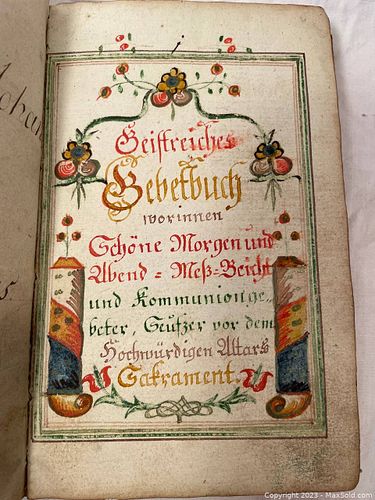 Geistreiches
Gebetbuch
worinnen
Schöne Morgen und
Abend = Meß-Beicht
und Kommunionge„
beter, Seufzer vor dem
Hochwürdigen Altars
Sakrament.
Copyright 2023 - MaxSold.com